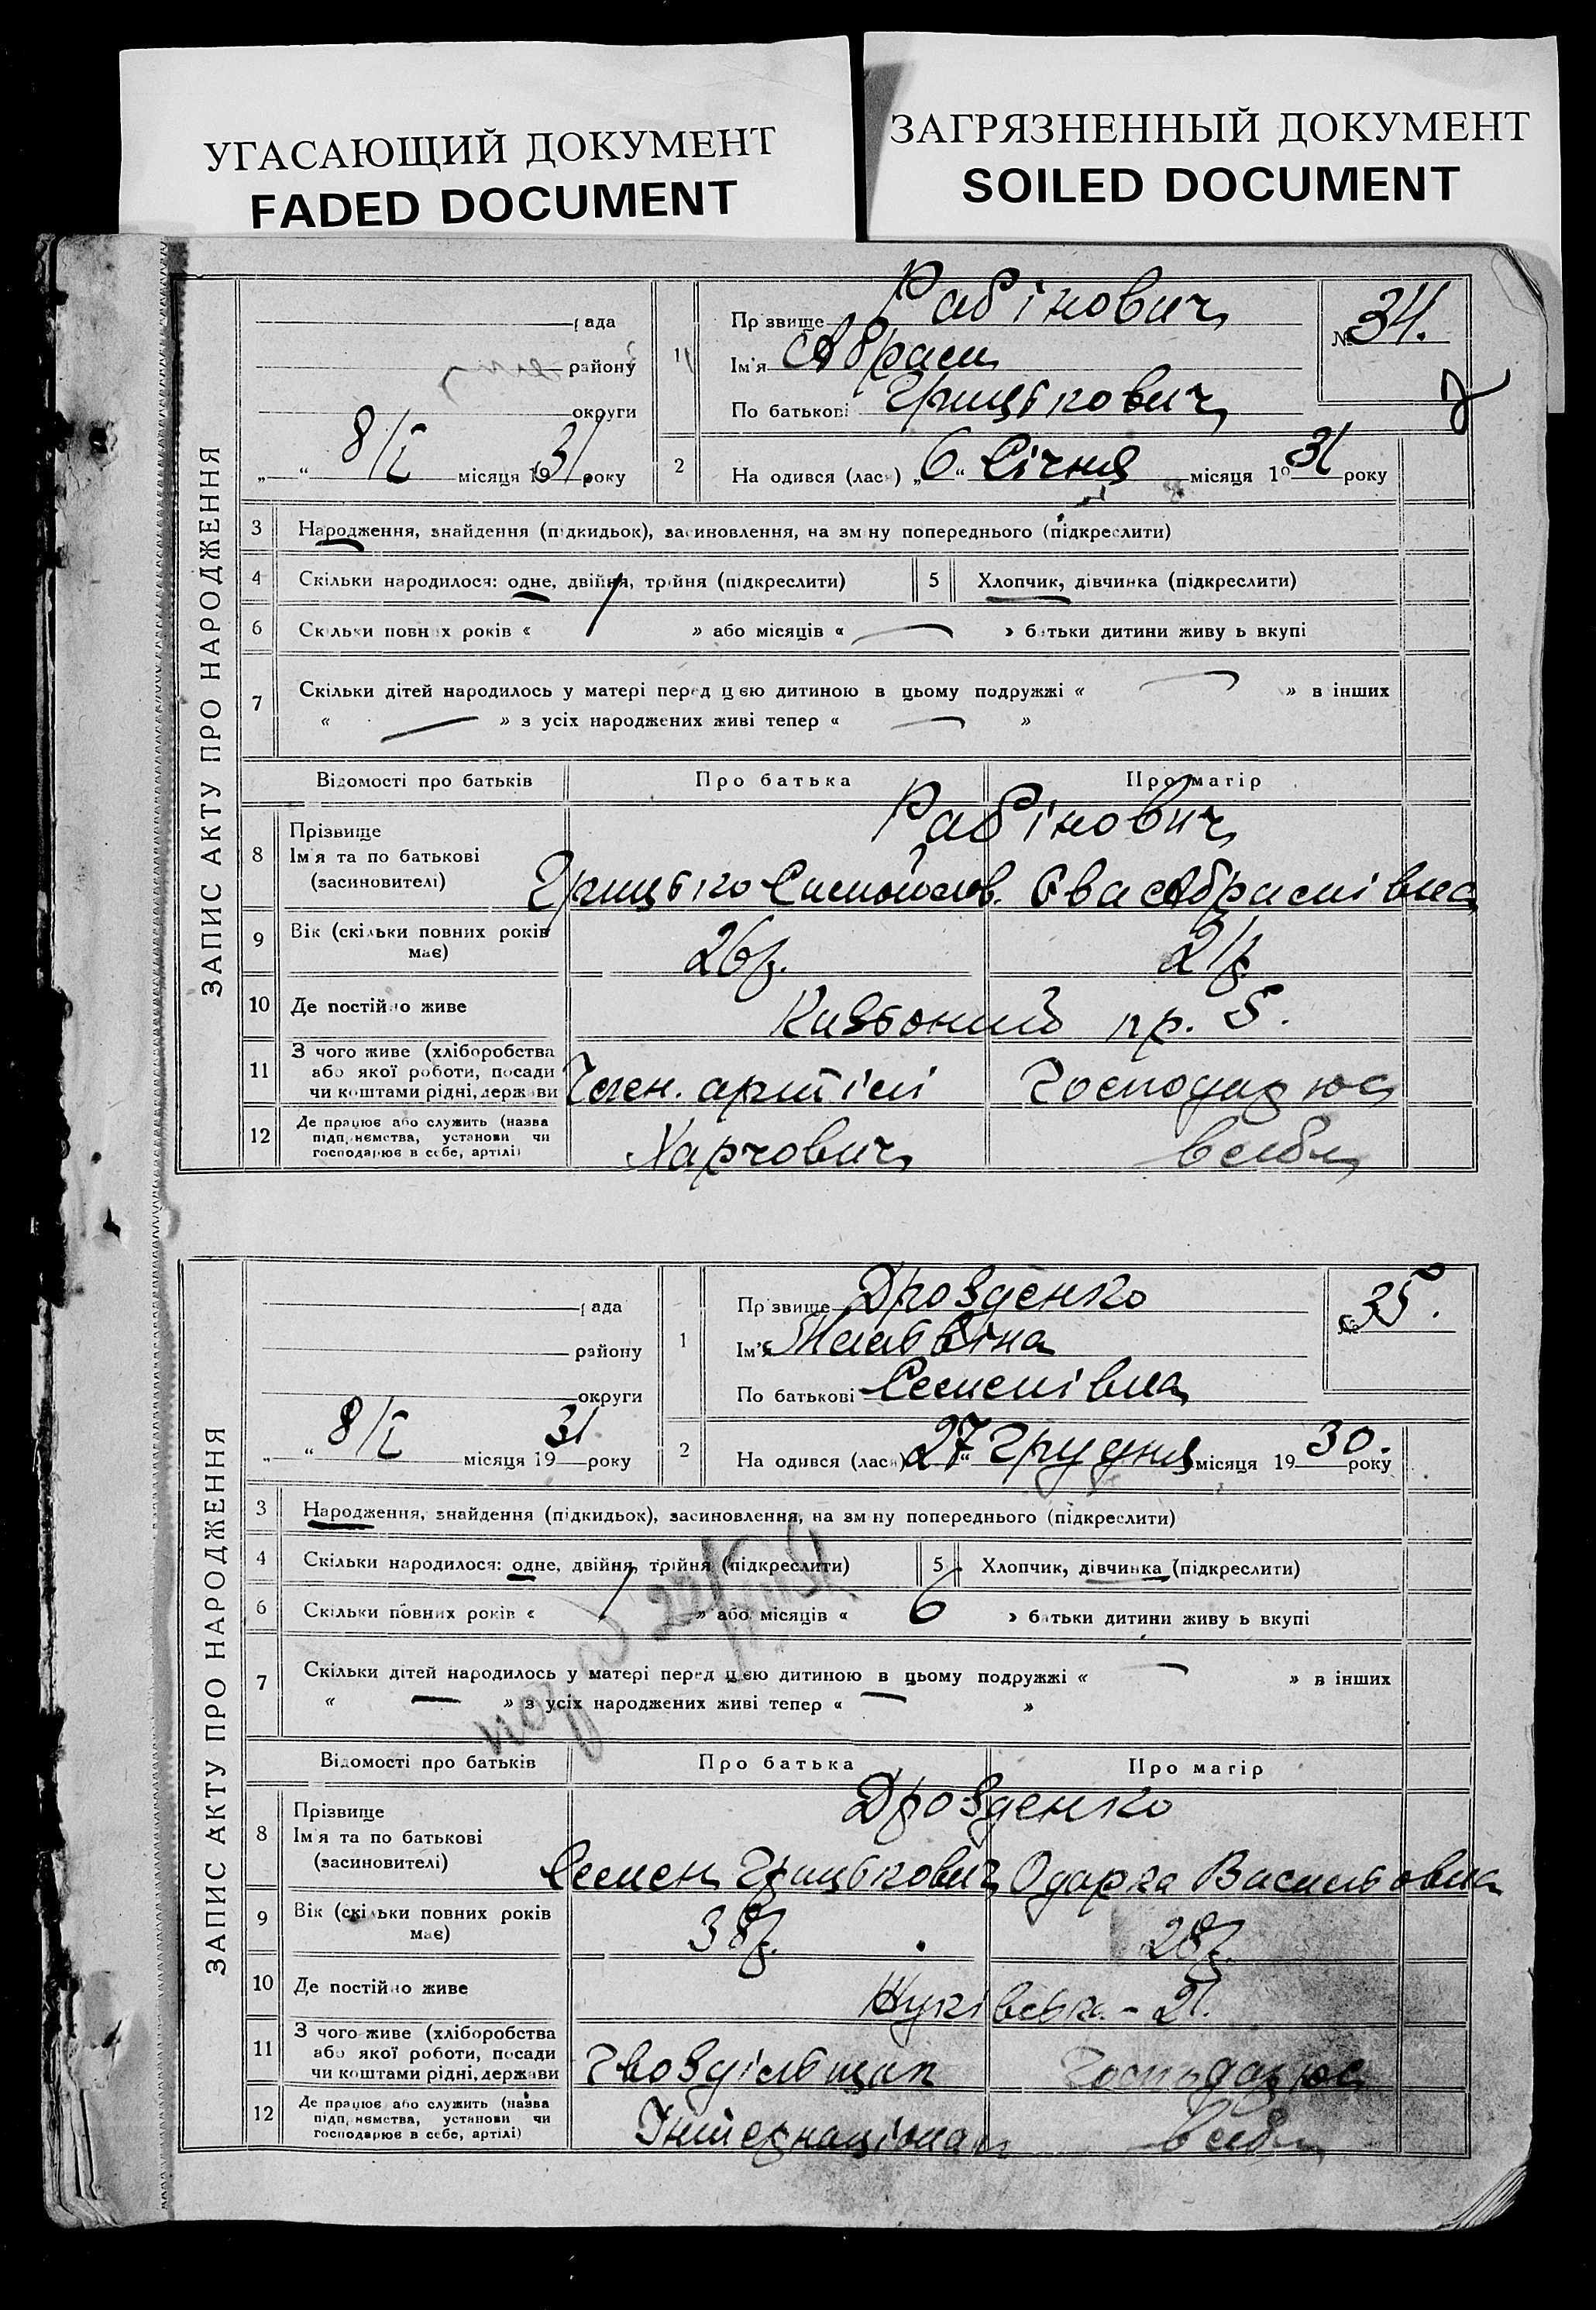 УГАСАЮЩИЙ ДОКУМЕНТ
FADED DOCUMENT
ЗАГРЯЗНЕННЫЙ ДОКУМЕНТ
SOILED DOCUMENT
ЗАПИС АКТУ ПРО НАРОДЖЕННЯ
рада
району
округи
8/I місяця 1931 року
1 Прізвище Рабінович
Ім'я Абрам
По батькові Грицькович
№ 34.
2 На одився (лась) „6“ Січня місяця 1931 року
3 Народження, знайдення (підкидьок), засиновлення, на зміну попереднього (підкреслити)
4 Скільки народилося: одне, двійня, трійня (підкреслити)
5 Хлопчик, дівчинка (підкреслити)
6 Скільки повних років « 1 » або місяців « — » батьки дитини живуть вкупі
7 Скільки дітей народилось у матері перед цією дитиною в цьому подружжі « — » в інших
« — » з усіх народжених живі тепер « — »
Відомості про батьків
Про батька
Про матір
8 Прізвище
Ім'я та по батькові
(засиновителі)
Рабінович
Грицько
Абрамівна
9 Вік (скільки повних років має)
26р.
21р.
10 Де постійно живе
пр. 5.
11 З чого живе (хліборобства
або якої роботи, посади
чи коштами рідні, держави
Член. артілі
Господарює
12 Де працює або служить (назва
підприємства, установи чи
господарює в себе, артілі)
Харчович
в себя
ЗАПИС АКТУ ПРО НАРОДЖЕННЯ
рада
району
округи
8/I місяця 1931 року
1 Прізвище Дрозденко
Ім'я Мальвіна
По батькові Семенівна
№ 35.
2 На одився (лась) „27“ Грудня місяця 1930. року
3 Народження, знайдення (підкидьок), засиновлення, на зміну попереднього (підкреслити)
4 Скільки народилося: одне, двійня, трійня (підкреслити)
5 Хлопчик, дівчинка (підкреслити)
6 Скільки повних років « 1 » або місяців « 6 » батьки дитини живуть вкупі
7 Скільки дітей народилось у матері перед цією дитиною в цьому подружжі « — » в інших
« — » з усіх народжених живі тепер « — »
Відомості про батьків
Про батька
Про матір
8 Прізвище
Ім'я та по батькові
(засиновителі)
Дрозденко
Семен Грицькович
Одарка Васильовна
9 Вік (скільки повних років має)
38р.
28р.
10 Де постійно живе
21.
11 З чого живе (хліборобства
або якої роботи, посади
чи коштами рідні, держави
Гвоздільщик
Господарює
12 Де працює або служить (назва
підприємства, установи чи
господарює в себе, артілі)
Інтернаціонал
в себя